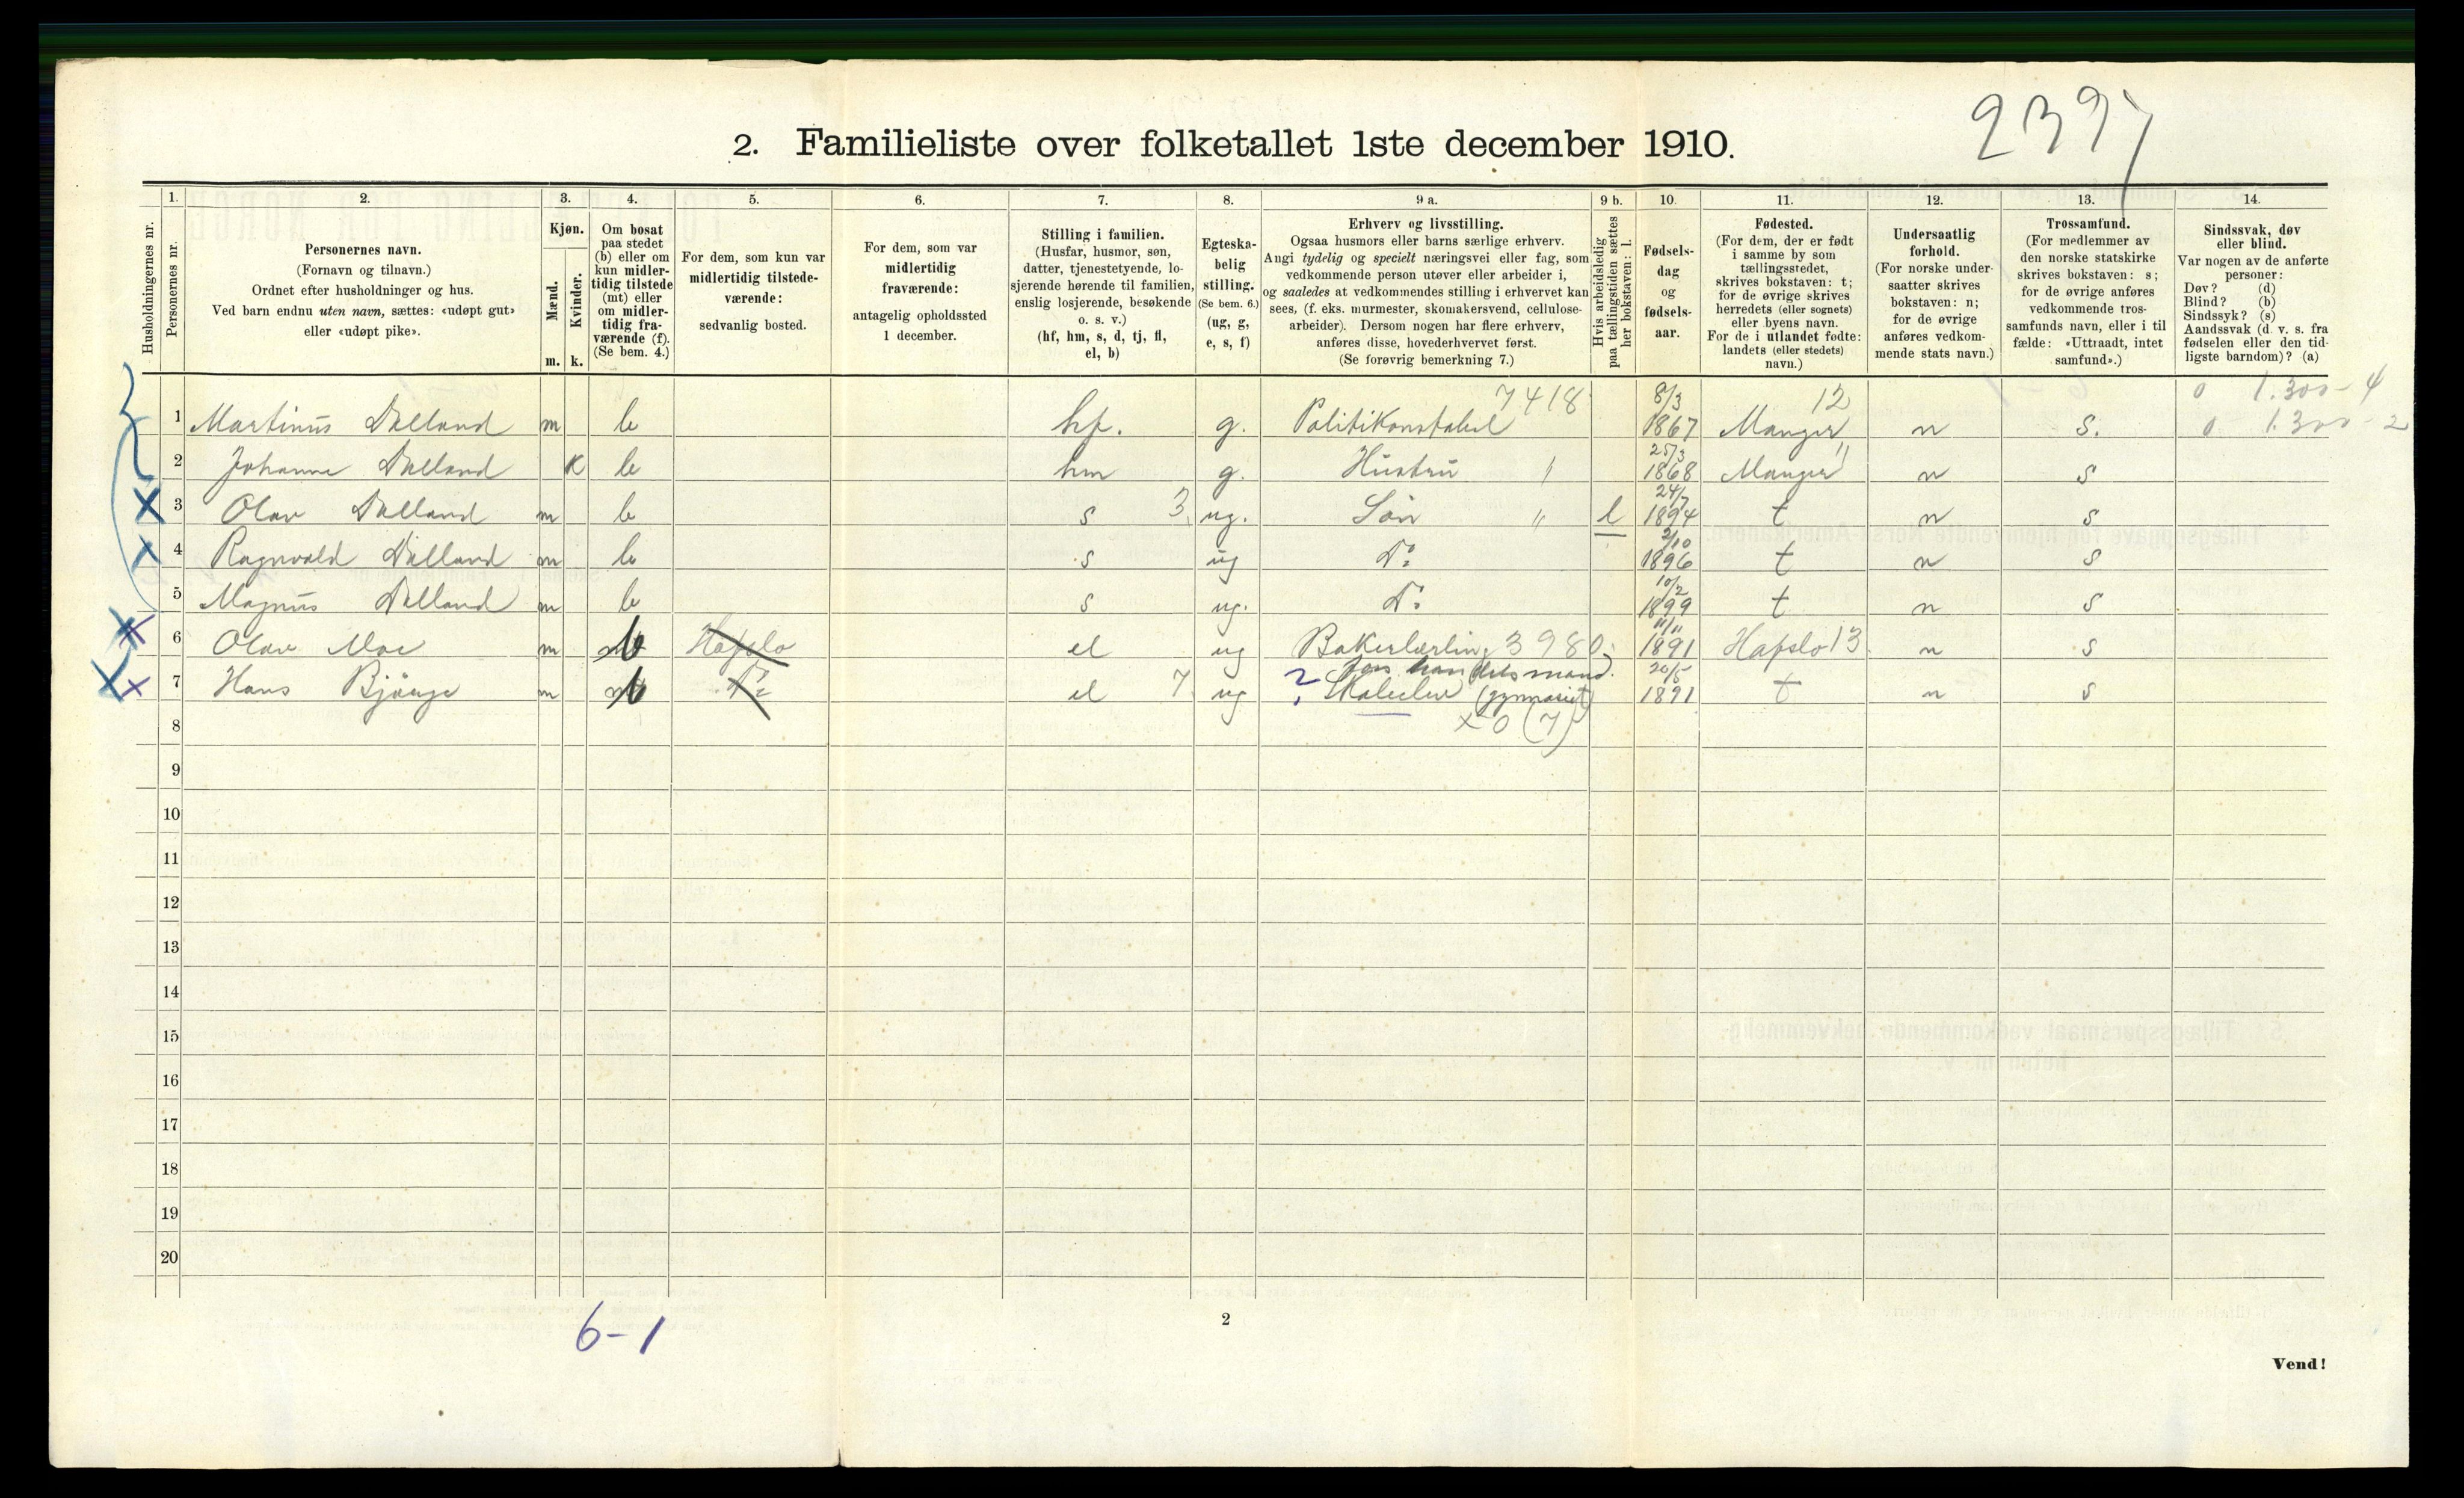 2397
2. Familieliste over folketallet 1ste december 1910.
Husholdningernes nr.
1.
Personernes nr.
2.
Personernes navn.
(Fornavn og tilnavn.)
Ordnet efter husholdninger og hus.
Ved barn endnu uten navn, sættes: «udøpt gut»
eller «udøpt pike».
3.
Kjøn.
Mænd.
Kvinder.
m. k.
4.
Om bosat
paa stedet
(b) eller om
kun midler-
tidig tilstede
(mt) eller
om midler-
tidig fra-
værende (f).
(Se bem. 4.)
5.
For dem, som kun var
midlertidig tilstede-
værende:
sedvanlig bosted.
6.
For dem, som var
midlertidig
fraværende:
antagelig opholdssted
1 december.
7.
Stilling i familien.
(Husfar, husmor, søn,
datter, tjenestetyende, lo-
sjerende hørende til familien,
enslig losjerende, besøkende
o. s. v.)
(hf, hm, s, d, tj, fl,
el, b)
8.
Egteska-
belig
stilling.
(Se bem. 6.)
(ug, g,
e, s, f)
9 a.
Erhverv og livsstilling.
Ogsaa husmors eller barns særlige erhverv.
Angi tydelig og specielt næringsvei eller fag, som
vedkommende person utøver eller arbeider i,
og saaledes at vedkommendes stilling i erhvervet kan
sees, (f. eks. murmester, skomakersvend, cellulose-
arbeider). Dersom nogen har flere erhverv,
anføres disse, hovederhvervet først.
(Se forøvrig bemerkning 7.)
9 b.
Hvis arbeidsledig
paa tællingstiden sættes
her bokstaven: l.
10.
Fødsels-
dag
og
fødsels-
aar.
11.
Fødested.
(For dem, der er født
i samme by som
tællingsstedet,
skrives bokstaven: t;
for de øvrige skrives
herredets (eller sognets)
eller byens navn.
For de i utlandet fødte:
landets (eller stedets)
navn.)
12.
Undersaatlig
forhold.
(For norske under-
saatter skrives
bokstaven: n;
for de øvrige
anføres vedkom-
mende stats navn.)
13.
Trossamfund.
(For medlemmer av
den norske statskirke
skrives bokstaven: s;
for de øvrige anføres
vedkommende tros-
samfunds navn, eller i til
fælde: «Uttraadt, intet
samfund».)
14.
Sindssvak, døv
eller blind.
Var nogen av de anførte
personer:
Døv? (d)
Blind? (b)
Sindssyk? (s)
Aandssvak (d. v. s. fra
fødselen eller den tid-
ligste barndom)? (a)
7418 8/3 12 0 1.300 - 4
1 Martinus Dalland m b hf. g. Politikonstabel 1867 Manger n s. 0 1.300 - 2
2 Johanne Dalland k b hm g. Hustru " 25/3 1868 Manger " n s
3 Olav Dalland m b s 3 ug. Søn " l 24/7 1894 t n s
4 Ragnvald Dalland m b s ug Do 2/10 1896 t n s
5 Magnus Dalland m b s ug. Do 10/2 1899 t n s
6 Olav Moe m b Hafslo el ug Bakerlærling 3980 11/11 1891 Hafslo 13 n s
for handelsmand.
7 Hans Bjørge m b Do el 7 ug ? Skoleelev (gymnasiet) 20/5 1891 t n s
8 x 0 (7)
9
10
11
12
13
14
15
16
17
18
19
20
6-1
2
Vend!